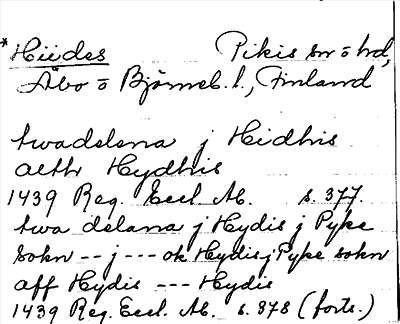 *Hiides Pikis sn o hd,
Åbo o Björneb. l., Finland
twadelana j Heidhis
aeth Hydhis
1439 Reg. Eccl. Ab. s. 377.
twa delana j Hydis j Pyke
sokn -- j --- ok Hydis j Pyke sokn
aff Hydis --- Hydis
1439 Reg. Eccl. Ab. s. 378 (forts.)